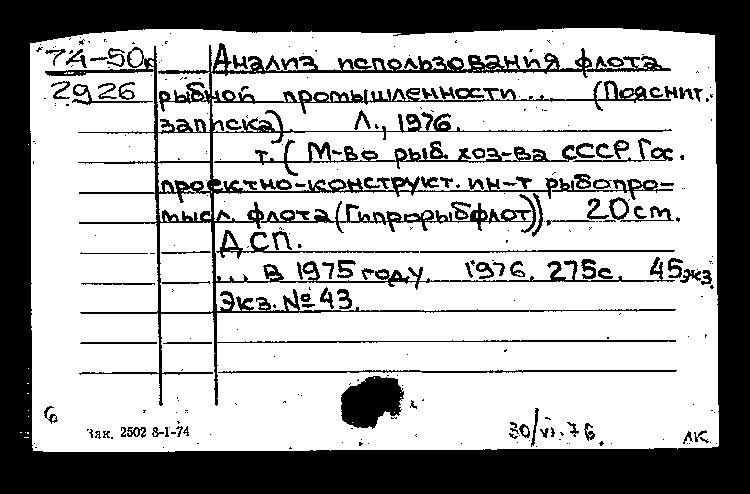 74-50к Анализ использования флота
2926 рыбной промышленности... (Пояснит.
записка). Л., 1976.
т. (М-во рыб. хоз-ва СССР. Гос.
проектно-конструкт. ин-т рыбопро-
мысл. флота (Гипрорыбфлот)). 20 см.
ДСП.
... В 1975 году. 1976. 275с. 45экз.
Экз. № 43.
6
Зак. 2502 8-I-74
30/VI.76.
ЛК